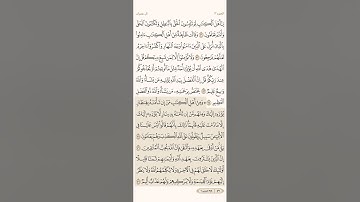 يَٰٓأَهْلَ ٱلْكِتَٰبِ لِمَ تَلْبِسُونَ ٱلْحَقَّ بِٱلْبَٰطِلِ وَتَكْتُمُونَ ٱلْحَقَّ
وَأَنتُمْ تَعْلَمُونَ ٧١ وَقَالَت طَّآئِفَةٌ مِّنْ أَهْلِ ٱلْكِتَٰبِ ءَامِنُوا۟
بِٱلَّذِىٓ أُنزِلَ عَلَى ٱلَّذِينَ ءَامَنُوا۟ وَجْهَ ٱلنَّهَارِ وَٱكْفُرُوٓا۟ ءَاخِرَهُۥ
لَعَلَّهُمْ يَرْجِعُونَ ٧٢ وَلَا تُؤْمِنُوٓا۟ إِلَّا لِمَن تَبِعَ دِينَكُمْ قُلْ إِنَّ
ٱلْهُدَىٰ هُدَى ٱللَّهِ أَن يُؤْتَىٰٓ أَحَدٌ مِّثْلَ مَآ أُوتِيتُمْ أَوْ يُحَآجُّوكُمْ
عِندَ رَبِّكُمْ قُلْ إِنَّ ٱلْفَضْلَ بِيَدِ ٱللَّهِ يُؤْتِيهِ مَن يَشَآءُ وَٱللَّهُ
وَٰسِعٌ عَلِيمٌ ٧٣ يَخْتَصُّ بِرَحْمَتِهِۦ مَن يَشَآءُ وَٱللَّهُ ذُو ٱلْفَضْلِ
ٱلْعَظِيمِ ٧٤ ۞ وَمِنْ أَهْلِ ٱلْكِتَٰبِ مَنْ إِن تَأْمَنْهُ بِقِنطَارٍ
يُؤَدِّهِۦٓ إِلَيْكَ وَمِنْهُم مَّنْ إِن تَأْمَنْهُ بِدِينَارٍ لَّا يُؤَدِّهِۦٓ
إِلَيْكَ إِلَّا مَا دُمْتَ عَلَيْهِ قَآئِمًا ذَٰلِكَ بِأَنَّهُمْ قَالُوا۟ لَيْسَ عَلَيْنَا فِى
ٱلْأُمِّيِّـۧنَ سَبِيلٌ وَيَقُولُونَ عَلَى ٱللَّهِ ٱلْكَذِبَ وَهُمْ يَعْلَمُونَ ٧٥
بَلَىٰ مَنْ أَوْفَىٰ بِعَهْدِهِۦ وَٱتَّقَىٰ فَإِنَّ ٱللَّهَ يُحِبُّ ٱلْمُتَّقِينَ ٧٦
إِنَّ ٱلَّذِينَ يَشْتَرُونَ بِعَهْدِ ٱللَّهِ وَأَيْمَٰنِهِمْ ثَمَنًا قَلِيلًا
أُو۟لَٰٓئِكَ لَا خَلَٰقَ لَهُمْ فِى ٱلْـَٔاخِرَةِ وَلَا يُكَلِّمُهُمُ ٱللَّهُ وَلَا يَنظُرُ
إِلَيْهِمْ يَوْمَ ٱلْقِيَٰمَةِ وَلَا يُزَكِّيهِمْ وَلَهُمْ عَذَابٌ أَلِيمٌ ٧٧